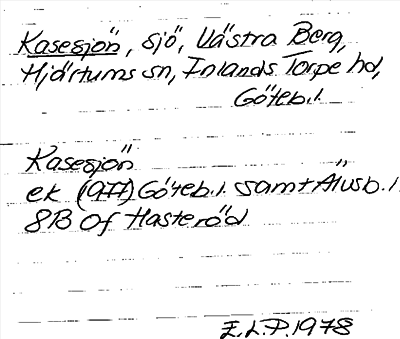 Kasesjön, sjö, Västra Berg,
Hjärtums sn, Inlands Torpe hd,
Göteb.l.
Kasesjön
ek (1977) Göteb.l. samt Älvsb.l.
8B 0f Hasteröd
E.L.P. 1978